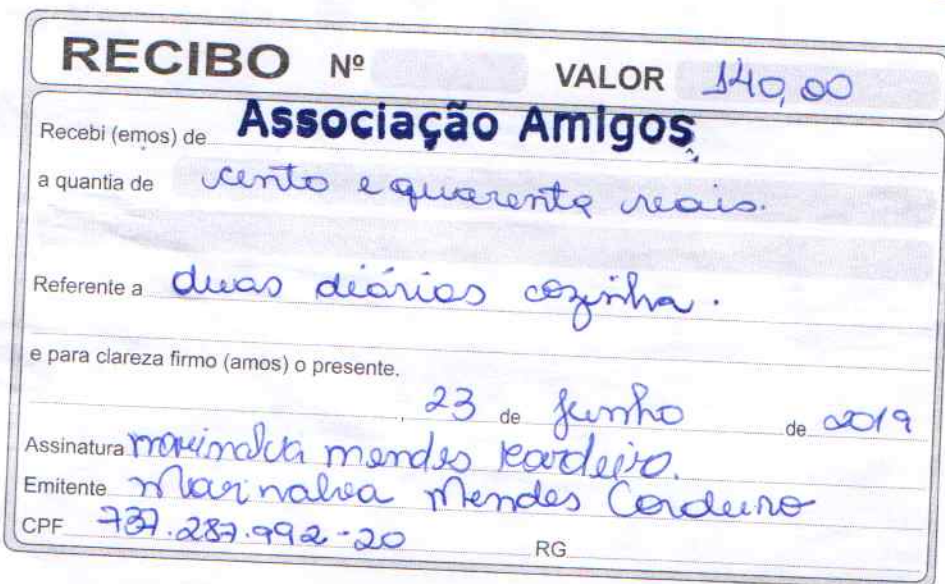 RECIBO Nº VALOR 140,00
Recebi (emos) de Associação Amigos
a quantia de cento e quarenta reais.
Referente a duas diárias cozinha.
e para clareza firmo (amos) o presente.
, 23 de Junho de 2019
Assinatura marinalva mendes kordeiro.
Emitente Marinalva Mendes Cordeiro
CPF 737.287.992-20 RG